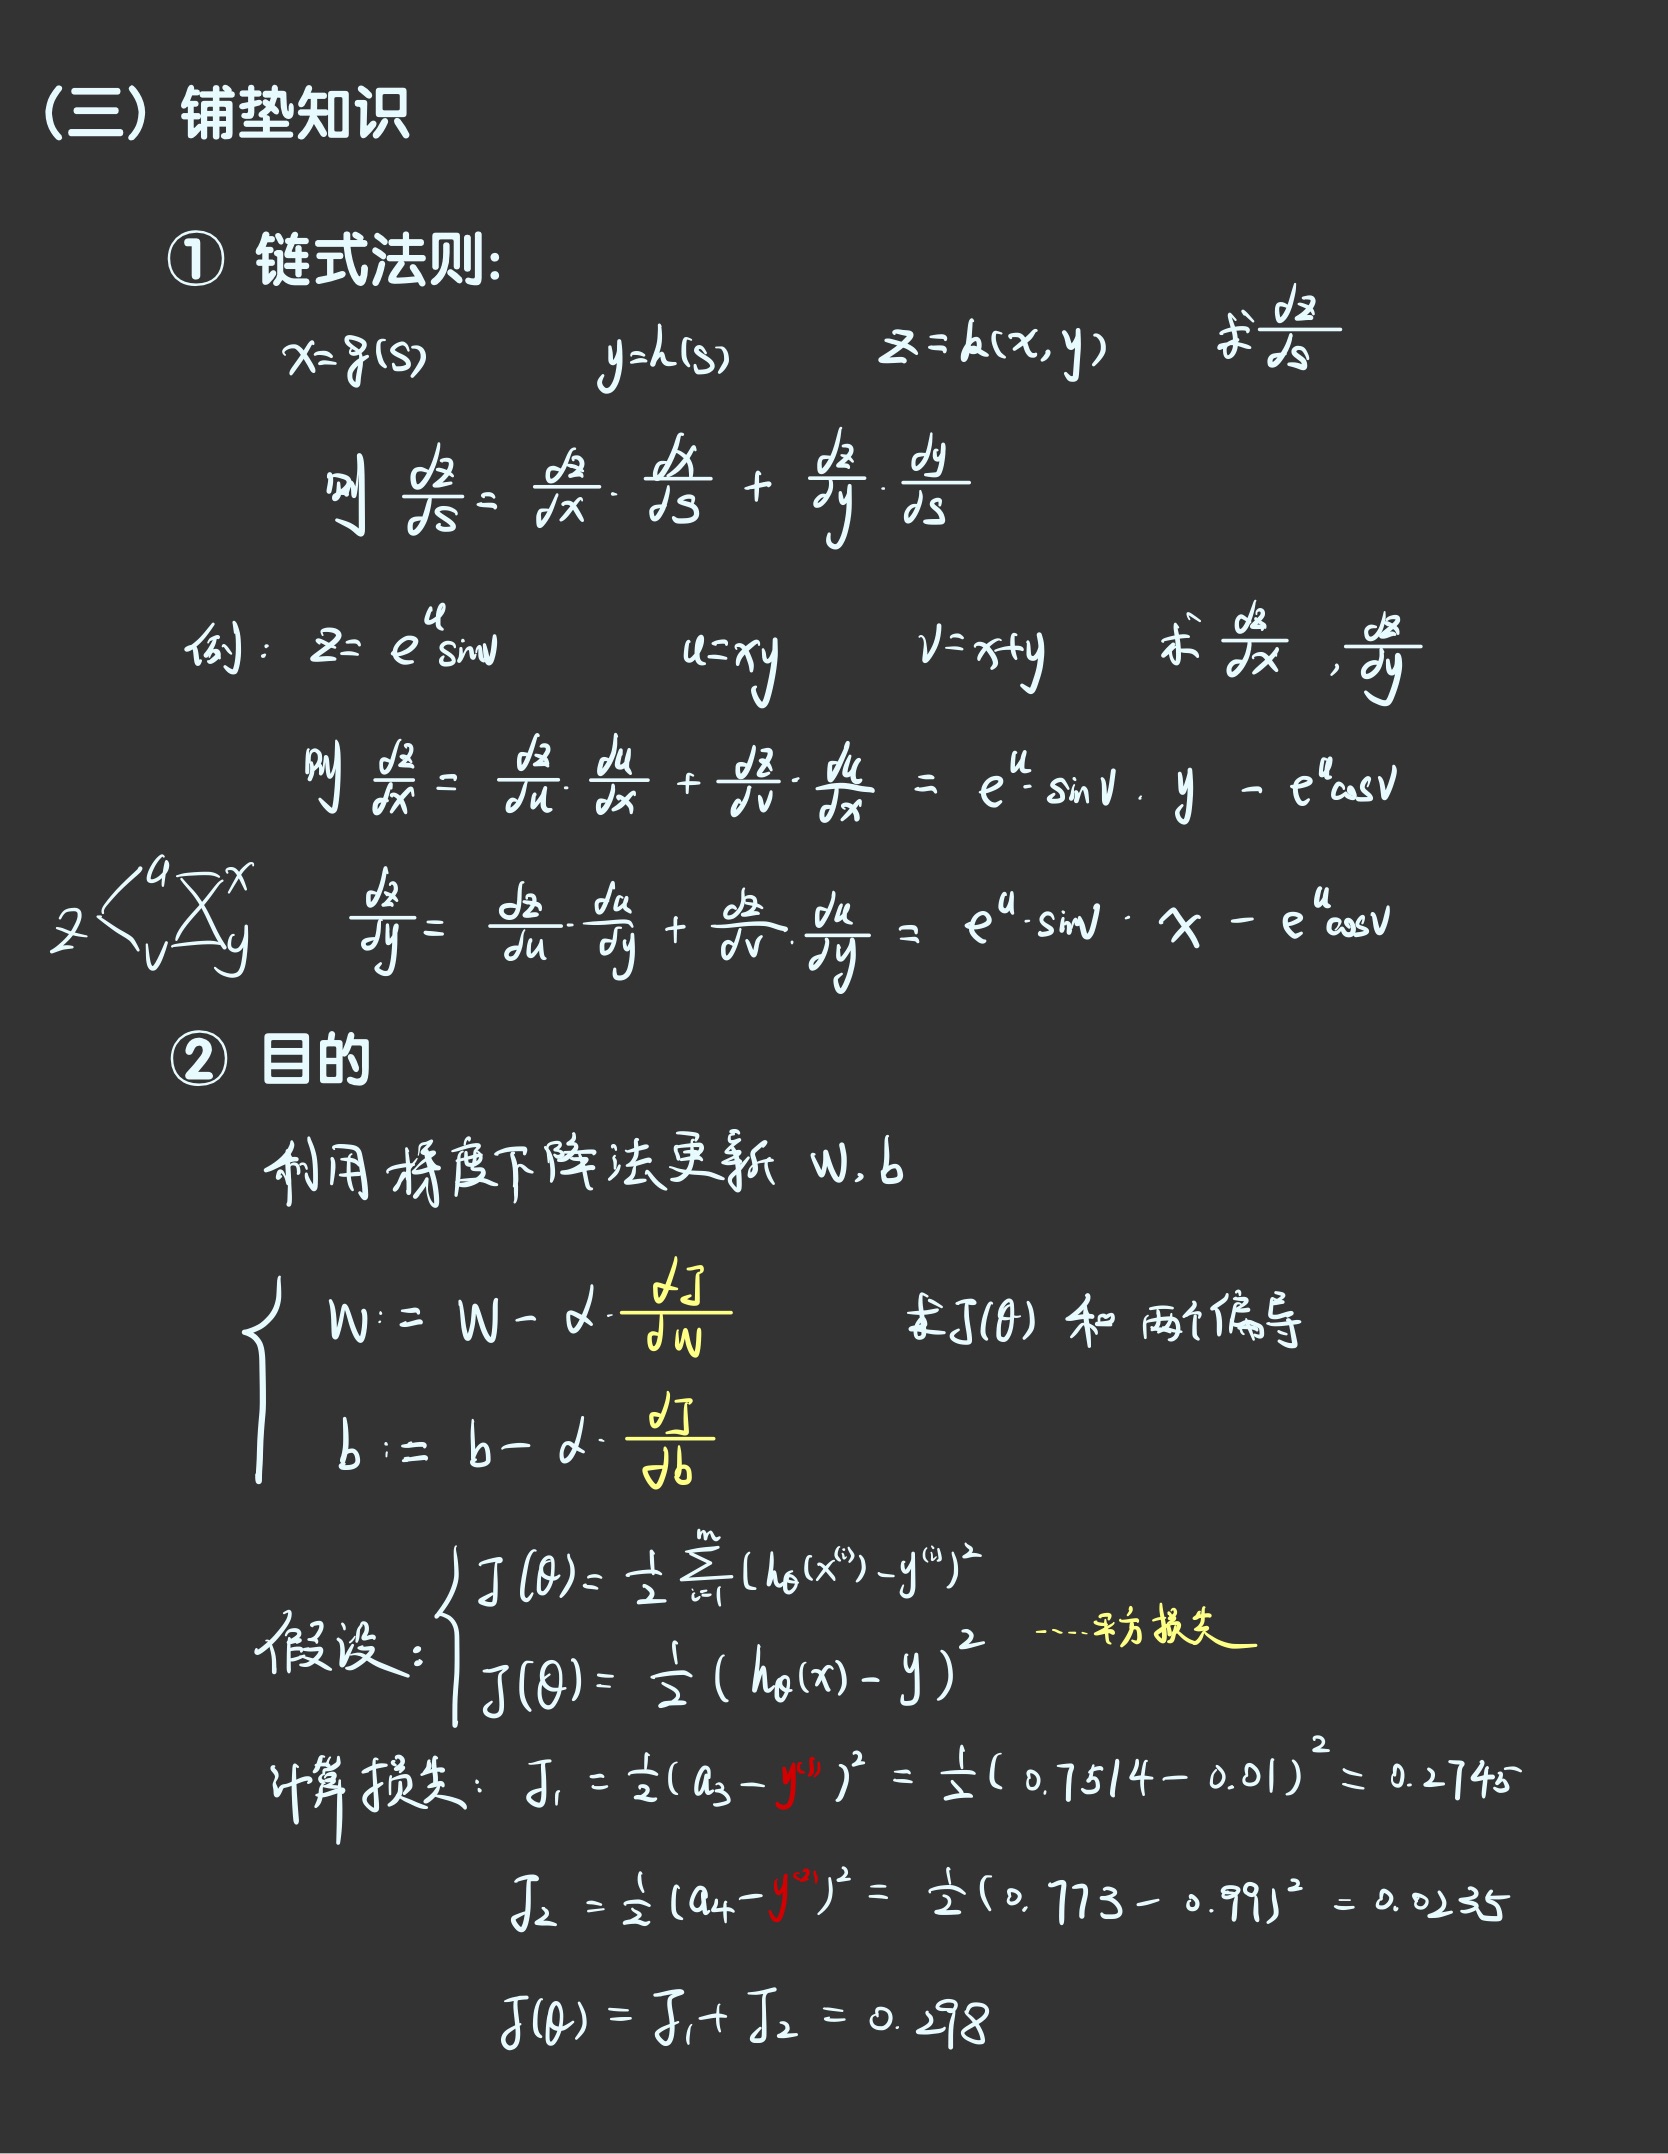 （三）铺垫知识
① 链式法则:
x=g(s) y=h(s) z=k(x,y) 求 dz/ds
则 dz/ds = dz/dx · dx/ds + dz/dy · dy/ds
例: z= e^u sinv u=xy v=x+y 求 dz/dx , dz/dy
则 dz/dx = dz/du · du/dx + dz/dv · du/dx = e^u · sinv · y - e^u cosv
z u v x y
dz/dy = dz/du · du/dy + dz/dv · du/dy = e^u · sinv · x - e^u cosv
② 目的
利用梯度下降法更新 w, b
w := w - α · dJ/dw 求J(θ) 和 两个偏导
b := b - α · dJ/db
假设: J(θ) = 1/2 Σ_{i=1}^{m} (h_θ(x^(i)) - y^(i))^2
J(θ) = 1/2 (h_θ(x) - y)^2 ……平方损失
计算损失: J₁ = 1/2 (a₃ - y^(1))^2 = 1/2 (0.7514 - 0.01)^2 = 0.2745
J₂ = 1/2 (a₄ - y^(2))^2 = 1/2 (0.773 - 0.99)^2 = 0.0235
J(θ) = J₁ + J₂ = 0.298